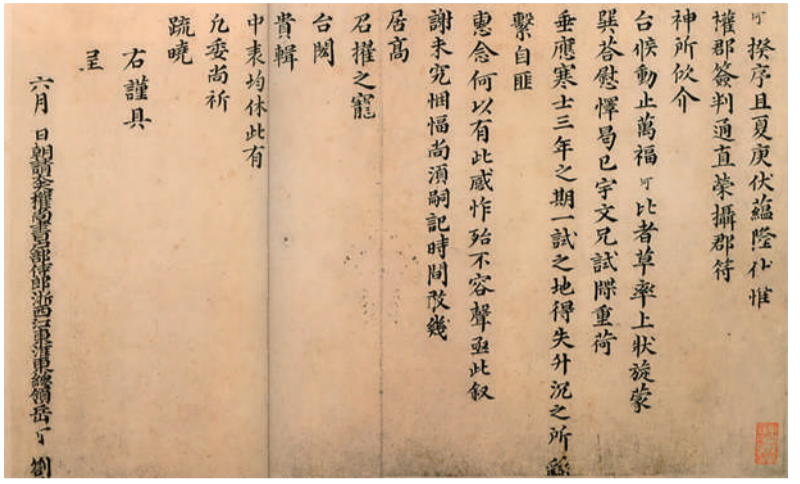 可揆序且夏庚伏蘊隆仆惟
權郡簽判通直榮攝郡符
神所佽介
台候動止萬福可比者草率上狀旋蒙
巽荅慰懌曷已宇文兄試牒重荷
垂應寒士三年之期一試之地得失升沉之所繇
繫自匪
惠念何以有此感怍殆不容聲亟此叙
謝未究悃愊尚須嗣記時間改幾
居高
召擢之寵
台閎
貴輯
中表均休此有
凢委尚祈
疏曉
右謹具
呈
六月 日朝請大夫權尚書戶部侍郎浙西江東淮東總領岳 可 劄